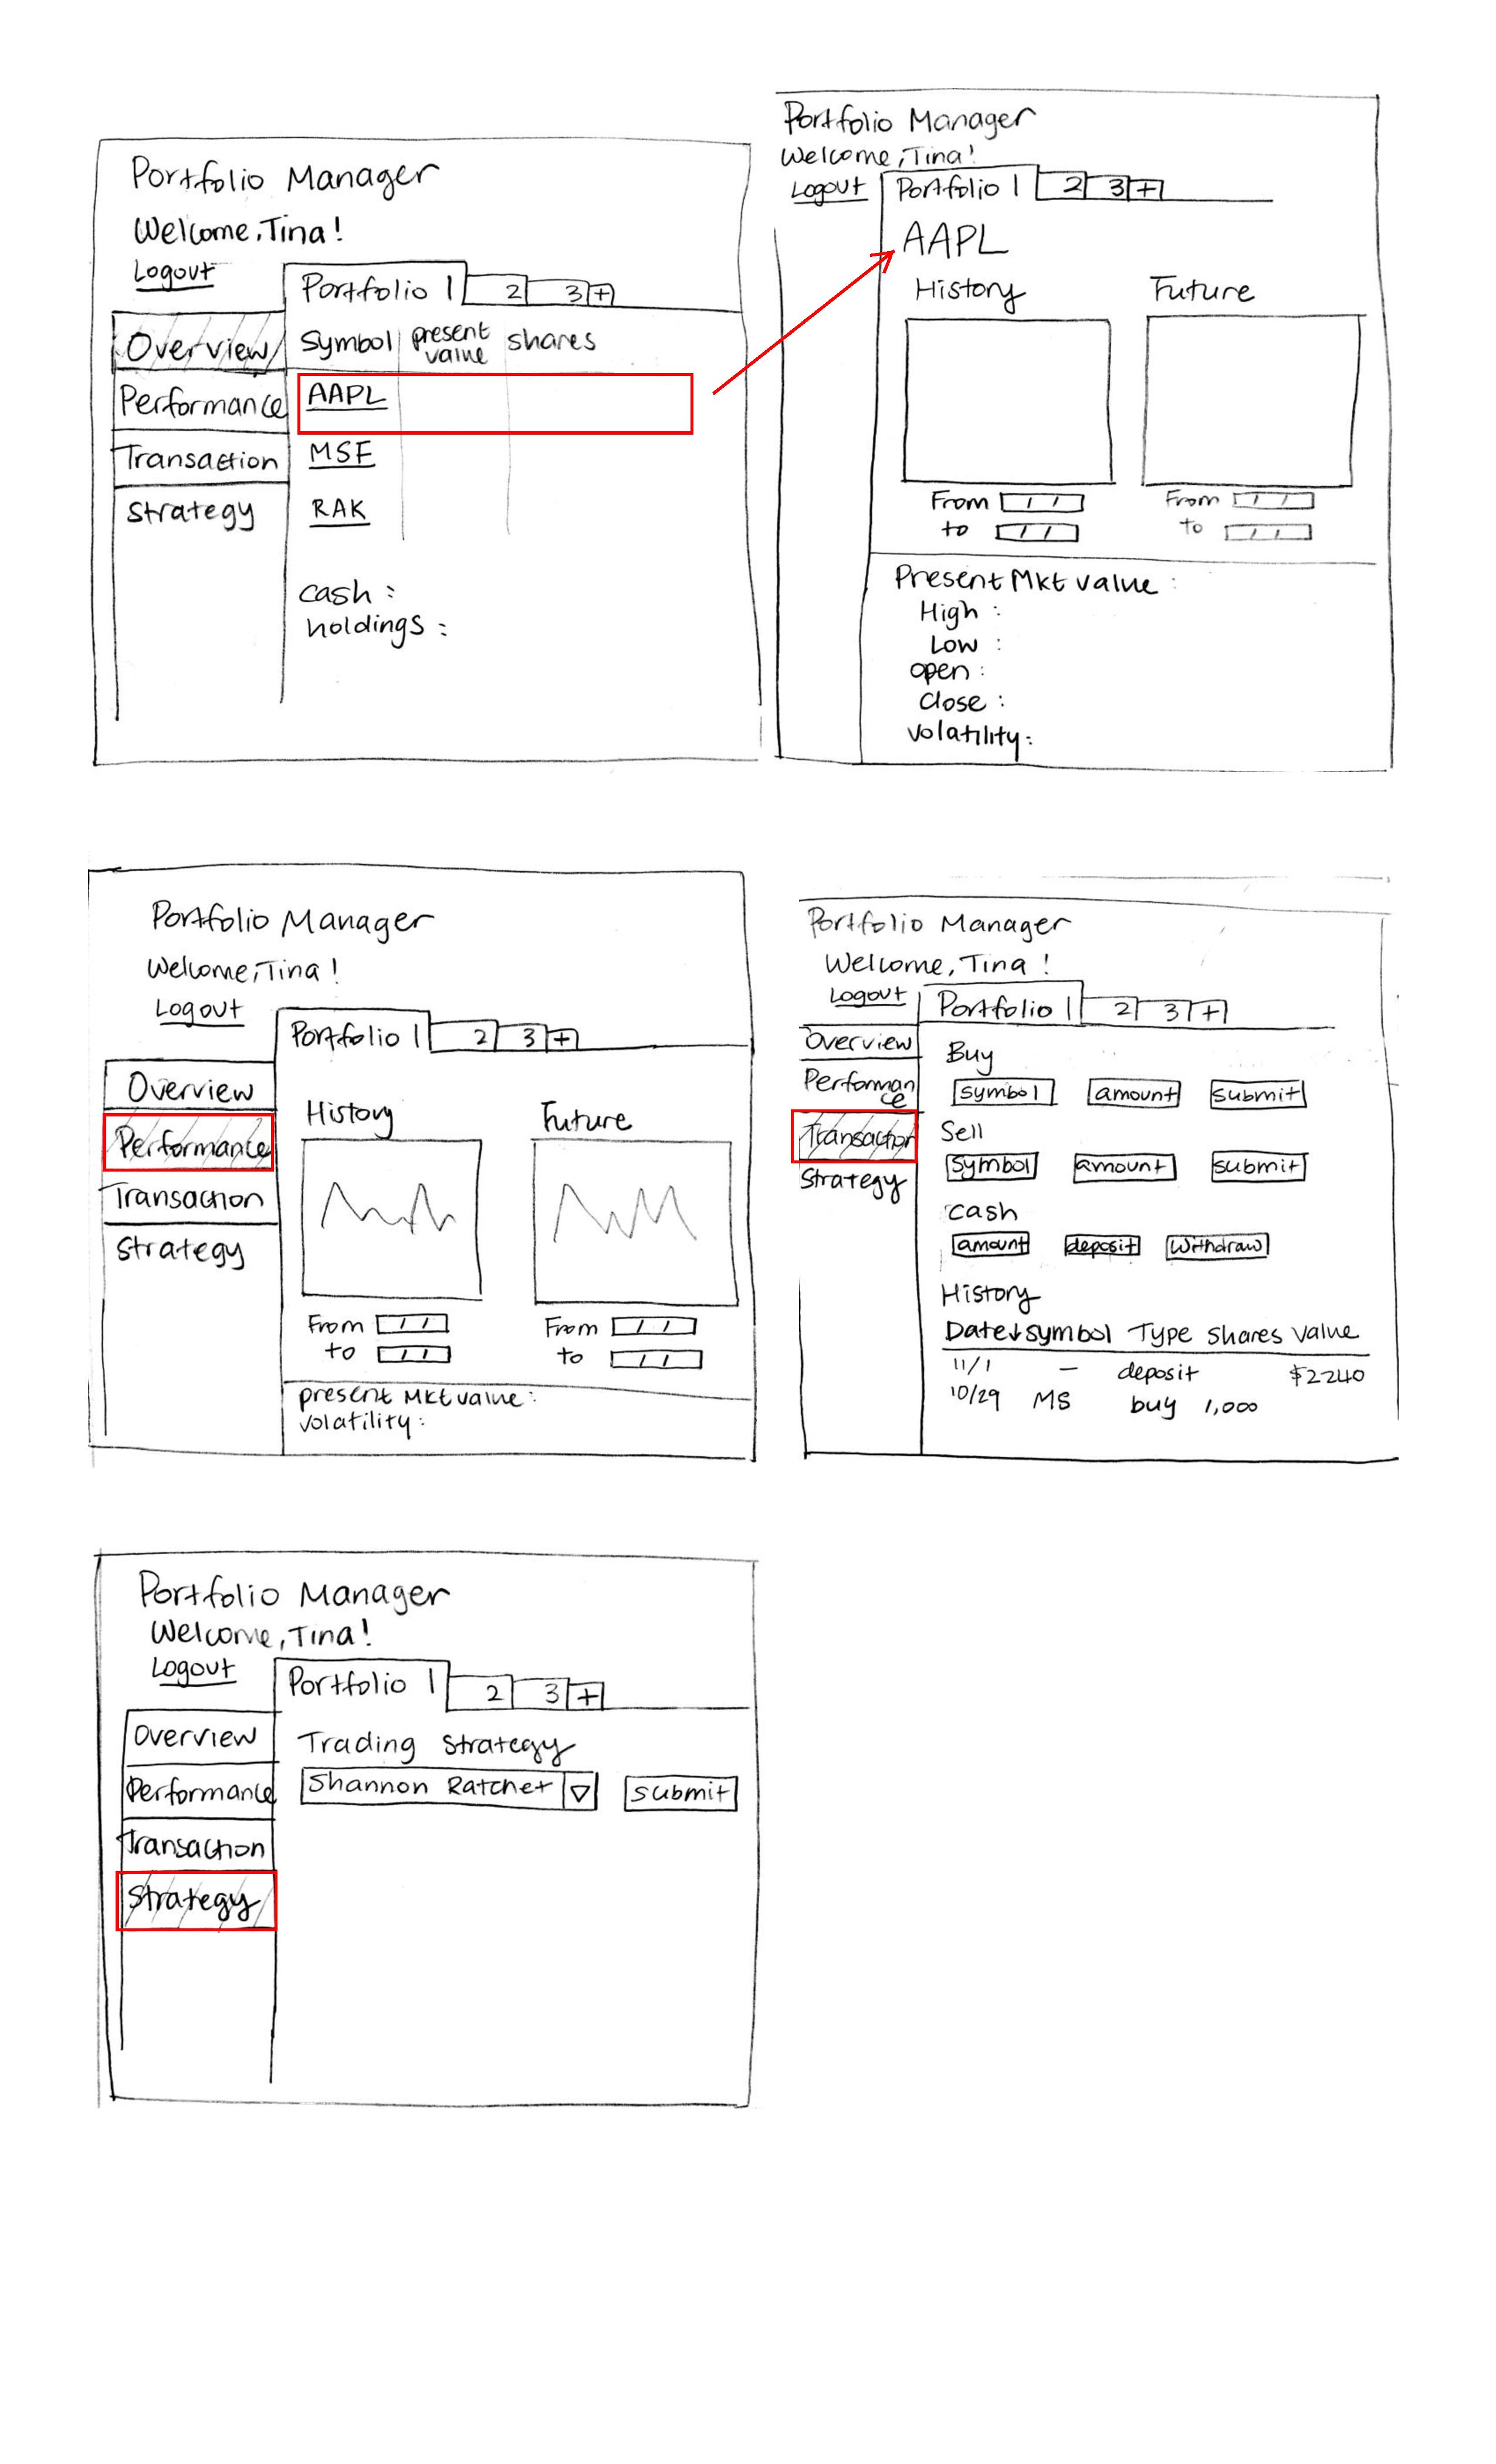 Portfolio Manager
Welcome, Tina!
Logout
Portfolio 1 2 3 +
Overview
Performance
Transaction
Strategy
Symbol present value shares
AAPL
MSF
RAK
cash :
holdings :
Portfolio Manager
Welcome, Tina!
Logout
Portfolio 1 2 3 +
AAPL
History Future
From / / From / /
to / / to / /
Present Mkt value :
High :
Low :
open :
Close :
volatility :
Portfolio Manager
Welcome, Tina!
Logout
Portfolio 1 2 3 +
Overview
Performance
Transaction
Strategy
History Future
From / / From / /
to / / to / /
present Mkt value :
volatility :
Portfolio Manager
Welcome, Tina!
Logout
Portfolio 1 2 3 +
Overview
Performance
Transaction
Strategy
Buy
symbol amount submit
Sell
symbol amount submit
cash
amount deposit withdraw
History
Date↓ symbol Type shares value
11/1 – deposit $2240
10/29 MS buy 1,000
Portfolio Manager
Welcome, Tina!
Logout
Portfolio 1 2 3 +
Overview
Performance
Transaction
Strategy
Trading strategy
Shannon Ratchet submit